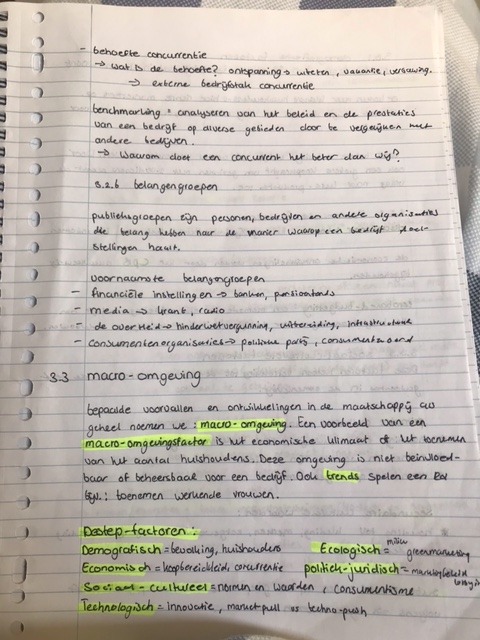 - behoefte concurrentie
→ wat is de behoefte? ontspanning → uiteten, vakantie,
→ externe bedrijfstak concurrentie
benchmarking = analyseren van het beleid en de prestaties
van een bedrijf op diverse gebieden door te vergelijken met
andere bedrijven.
→ Waarom doet een concurrent het beter dan wij?
3.2.6 belangengroepen
publieksgroepen zijn personen, bedrijven en andere organisaties
die belang hebben naar de manier waarop een bedrijf doel-
stellingen haalt.
voornaamste belangengroepen
- financiële instellingen → banken, pensioenfonds
- media → krant, radio
- de overheid → hinderwetvergunning, uitbreiding, infrastructuur
- consumentenorganisaties → politieke partij, consumentenbond
3.3 macro-omgeving
bepaalde voorvallen en ontwikkelingen in de maatschappij als
geheel noemen we: macro-omgeving. Een voorbeeld van een
macro-omgevingsfactor is het economische klimaat of het toenemen
van het aantal huishoudens. Deze omgeving is niet beïnvloed-
baar of beheersbaar voor een bedrijf. Ook trends spelen een rol
bijv.: toenemen werkende vrouwen.
Destep-factoren:
Demografisch = bevolking, huishoudens
Ecologisch = milieu greenmarketing
Economisch = koopbereidheid, concurrentie
politiek-juridisch =
Sociaal-cultureel = normen en waarden, consumentisme
Technologisch = innovatie, marketpull vs techno-push